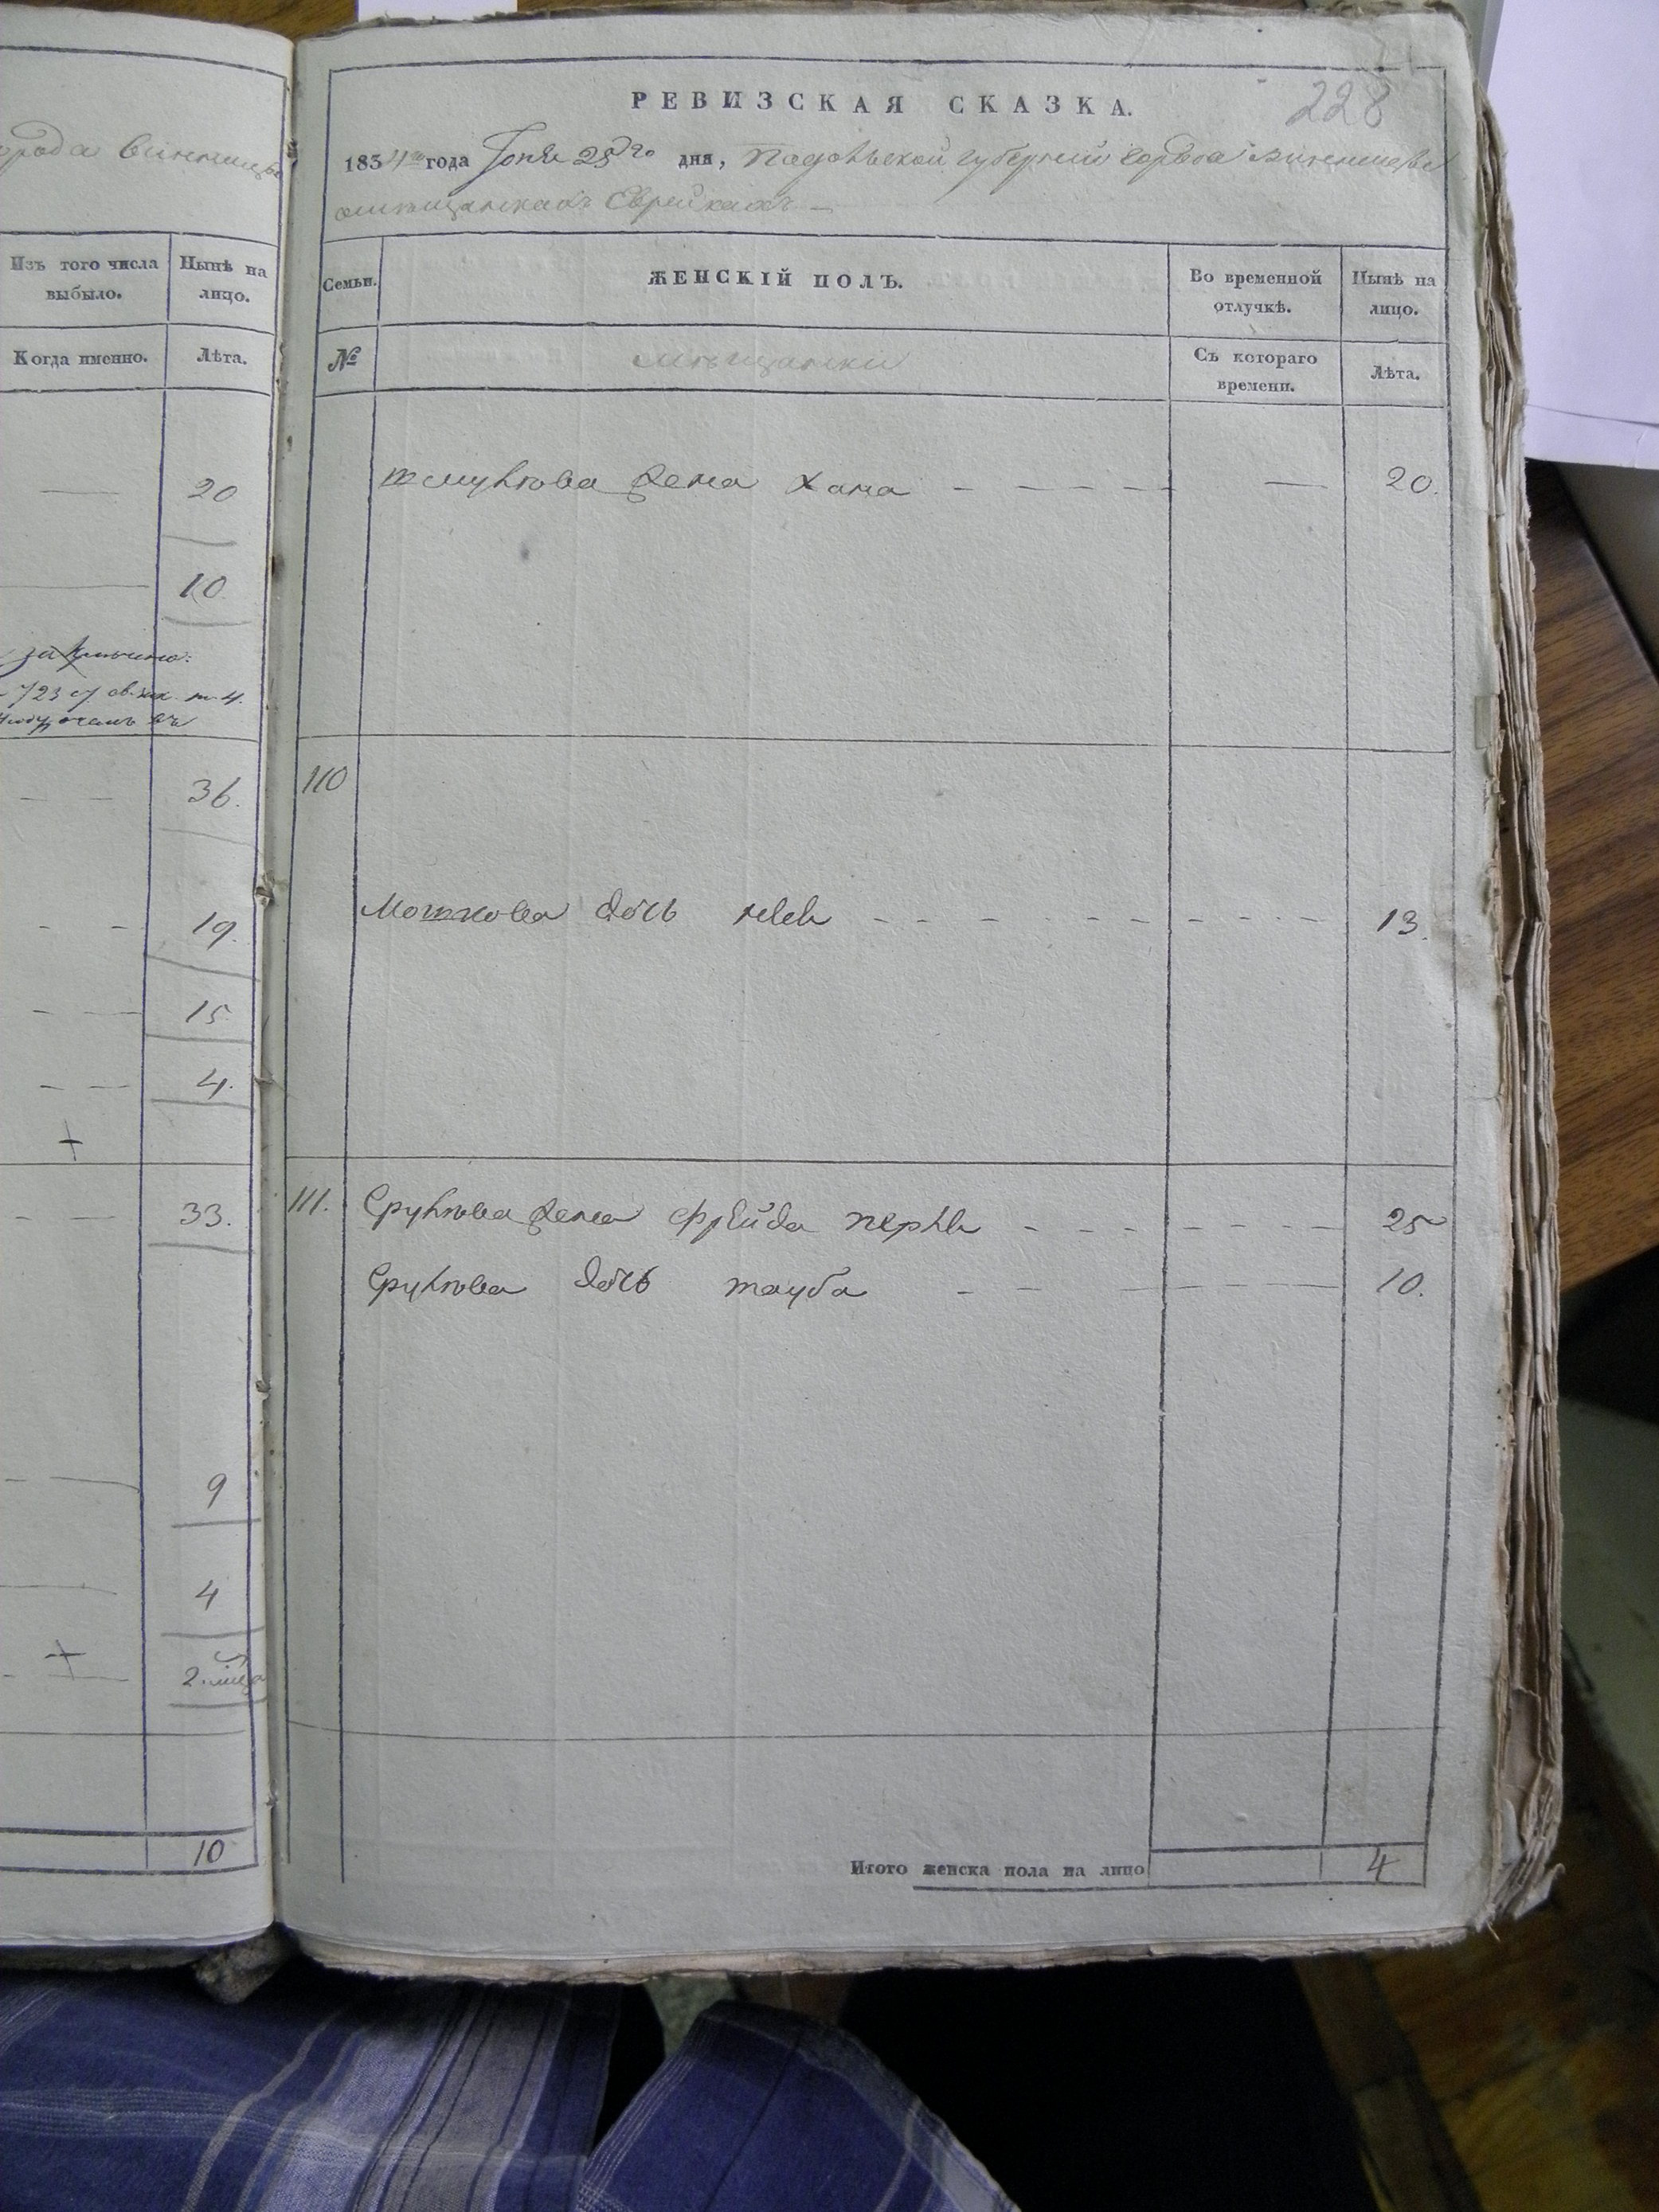 города Винницы
Изъ того числа выбыло.
Нынѣ на лицо.
Когда именно.
Лѣта.
20
10
723
36.
19.
15
4.
+
33.
9
4
+
2.
10
228
РЕВИЗСКАЯ СКАЗКА.
1834го года Іюня 25го дня, Подольской губерніи города Винницы
мѣщанкахъ Еврейкахъ
Семьи.
ЖЕНСКІЙ ПОЛЪ.
Во временной отлучкѣ.
Нынѣ на лицо.
№
мѣщанки
Съ котораго времени.
Лѣта.
Шмулiова жена Хана — — — — — 20.
110
Мошкова дочь - - - - - 13.
111. Срулiова жена Фрейда Перля - - - - - 25
Срулiова дочь Тауба - - - - 10.
Итого женска пола на лицо 4